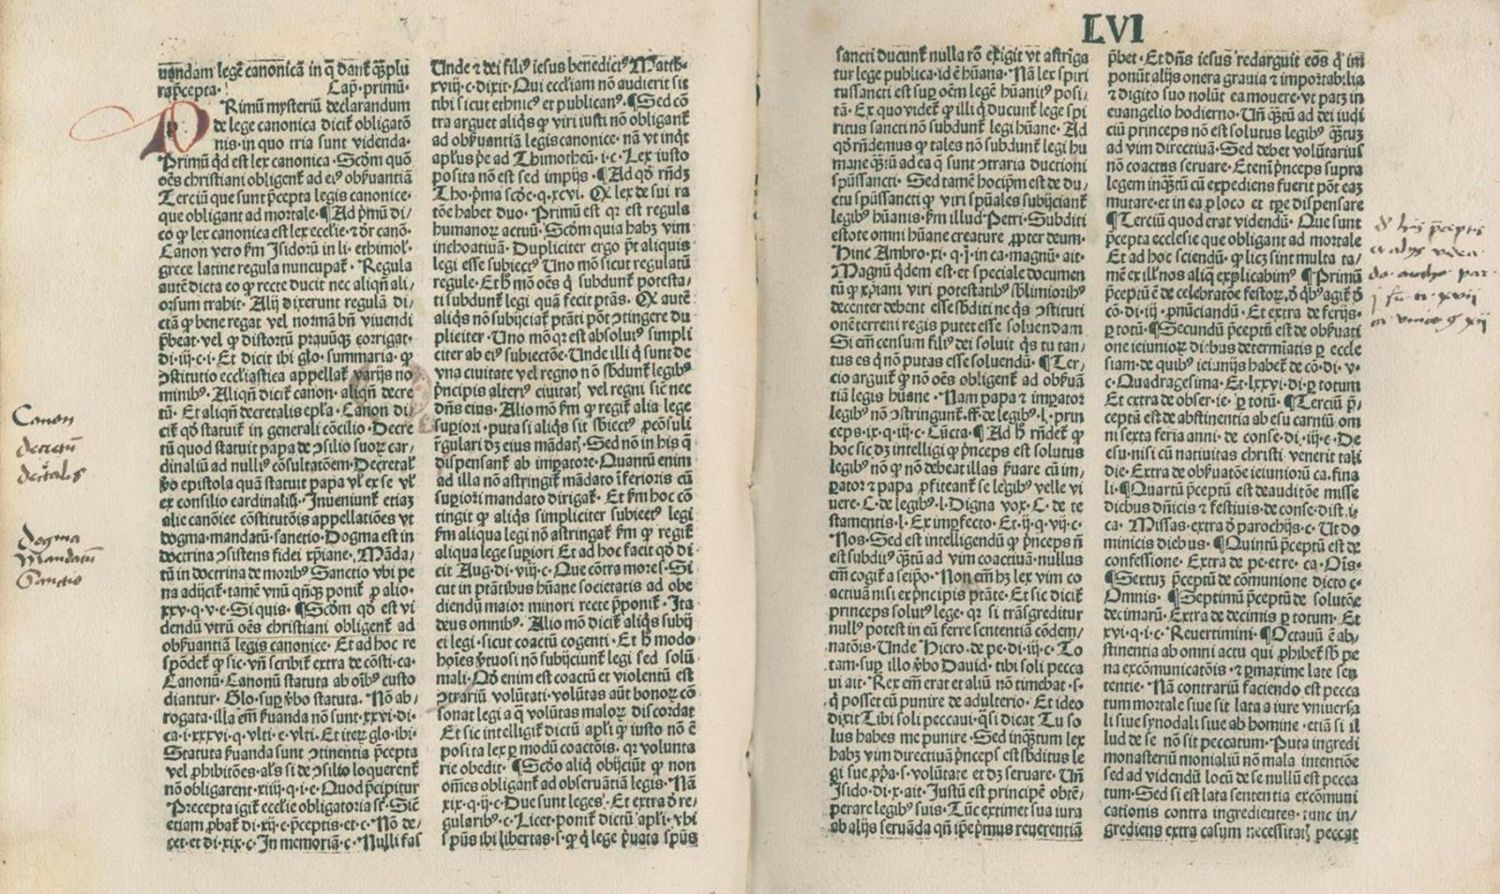 uandam legē canonicā in q̄ dant̄ q̄plu
ra p̄cepta · Cap̄ · primū ·
PRimū mysteriū declarandum
de lege canonica dicit̄ obligatō
nis · in quo tria sunt videnda ·
Primū qd̄ est lex canonica · Scd̄m quō
oēs christiani obligent̄ ad eiꝰ obẜuantiā
Terciū que sunt p̄cepta legis canonice ·
que obligant ad mortale · ¶ Ad p̄mū di/
co ꝙ lex canonica est lex eccl̄ie · ⁊ dr̄ canō ·
Canon vero ẜm Isidorū in li · ethimol ·
grece latine regula nuncupat̄ · Regula
autē dicta eo ꝙ recte ducit nec aliqn̄ ali/
orsum trahit · Alij dixerunt regulā di/
ctā ꝙ bene regat vel normā bn̄ viuendi
p̄beat · vel ꝙ distortū prauūqꝫ corrigat ·
di · iij · c · i · Et dicit ibi glo · summaria · ꝙ
ꝯstitutio eccl̄iastica appellat̄ varijs no
minibꝰ · Aliqn̄ dicit̄ canon · aliqn̄ decre
tū · Et aliqn̄ decretalis epl̄a · Canon di/
cit̄ qd̄ statuit̄ in generali cōcilio · Decre
tū quod statuit papa de ꝯsilio suoꝝ car/
dinaliū ad nulliꝰ cōsultatōem · Decretal̄
ꝟo epistola quā statuit papa vl̄ ex se vl̄
ex consilio cardinaliū · Inueniunt̄ etiaꝫ
alie canōice cōstitutōis appellatiōes vt
dogma · mandatū · sanctio · Dogma est in
doctrina ꝯsistens fidei xp̄iane · Māda/
tū in doctrina de moribꝰ Sanctio vbi pe
na adijcit̄ · tamē vnū qn̄qꝫ ponit̄ ꝓ alio ·
xxv · q · v · c · Si quis · ¶ Scd̄m qd̄ est vi
dendū vtrū oēs christiani obligent̄ ad
obẜuantiā legis canonice · Et ad hoc re
spōdet̄ ꝙ sic · vn̄ scribit̄ extra de cōsti · ca ·
Canonū · Canonū statuta ab oībꝰ custo
diantur · Glo · suꝑ ꝟbo statuta · Nō ab/
rogata · illa em̄ ẜuanda nō sunt · xxvi · di ·
ca · i · xxxvi · q · vlti · c · vlti · Et iteꝝ glo · ibi ·
Statuta ẜuanda sunt ꝯtinentia p̄cepta
vel ꝓhibitōes · als̄ si de ꝯsilio loquerent̄
nō obligarent · xiiij · q · i · c · Quod p̄cipitur
Precepta igit̄ eccl̄ie obligatoria sūt · Sic̄
etiam ꝓbat̄ di · xij · c · p̄ceptis · et · c · Nō de/
cet · et di · xix · c · In memoriā · c · Nulli fas
Vnde ⁊ dei filiꝰ iesus benedictꝰ Matth̄ ·
xviij · c · dixit · Qui eccl̄iam nō audierit sit
tibi sicut ethnicꝰ et publicanꝰ · ¶ Sed cō
tra arguet aliqs̄ ꝙ viri iusti nō obligant̄
ad obẜuantiā legis canonice · nā vt inqt̄
apl̄us p̄e ad Thimotheū · i · c · Lex iusto
posita nō est sed impijs · ¶ Ad qd̄ rn̄dꝫ
Tho · p̄ma scd̄e · q · xcvi · Qꝫ lex de sui ra
tōe habet duo · Primū est qꝛ est regula
humanoꝝ actuū · Scd̄m quia habꝫ vim
inchoatiuā · Dupliciter ergo p̄t aliquis
legi esse subiectꝰ Vno mō sicut regulatū
regule · Et h̄ mō oēs q̄ subdunt̄ potesta/
ti subdunt̄ legi quā fecit ptās · Qꝫ autē
aliqs̄ nō subijciat̄ ptāti pōt ꝯtingere du
pliciter · Vno mō qꝛ est absolutꝰ simpli
citer ab eiꝰ subiectōe · Vnde illi q̄ sunt de
vna ciuitate vel regno nō sb̄dunt̄ legibꝰ
p̄ncipis alteriꝰ ciuitatis̄ vel regni sic̄ nec
dn̄s eius · Alio mō ẜm ꝙ regit̄ alia lege
suꝑiori · puta si aliqs̄ sit sb̄iectꝰ ꝓcōsuli
r̄gulari dꝫ eius mādatis̄ · Sed nō in his q̄
dispensant̄ ab impatore · Quantū enim
ad illa nō astringit̄ mādato īferioris cū
suꝑiori mandato dirigat̄ · Et ẜm hoc cō
tingit ꝙ aliqs̄ simpliciter subiectꝰ legi
ẜm aliqua legi nō astringat̄ ẜm ꝙ regit̄
aliqua lege suꝑiori Et ad hoc facit qd̄ di
cit Aug · di · viij · c · Que cōtra mores · Si
cut in ptātibus hūane societatis ad obe
diendū maior minori recte p̄ponit̄ · Ita
deus omnibꝰ · Alio mō dicit̄ aliqs̄ subij
ci legi · sicut coactū cogenti · Et h̄ modo
hoīes ꝟtuosi nō subijciunt̄ legi sed solū
mali · Qd̄ enim est coactū et violentū est
ꝯtrariū volūtati · volūtas aūt bonoꝝ cō
sonat legi a q̄ volūtas maloꝝ discordat
Et sic intelligit̄ dictū apl̄i ꝙ iusto nō ē
posita lex ꝑ modū coactōis · qꝛ volunta
rie obedit · ¶ Scd̄o aliq̄ obijciūt̄ ꝙ non
om̄es obligant̄ ad obseruātiā legis · Nā
xix · q · ij · c · Due sunt leges · Et extra d̄ re/
gularibꝰ · c · Licet · ponit̄ dictū apl̄i · vbi
sp̄ūs ibi libertas · s · ꝙ q̄ lege p̄uata sp̄ūs
LVI
sancti ducunt̄ nulla rō exigit vt astrīga
tur lege publica · id ē hūana · Nā lex spiri
tussancti est suꝑ oēm legē hūanitꝰ posi/
tā · Ex quo videt̄ ꝙ illi q̄ ducunt̄ lege spi
ritus sancti nō subdunt̄ legi hūane · Ad
qd̄ rn̄demus ꝙ tales nō subdunt̄ legi hu
mane q̄tū ad ea q̄ sunt ꝯtraria ductioni
sp̄ūssancti · Sed tamē hoc ip̄m est de du/
ctu sp̄ūssancti ꝙ viri sp̄uāles subijciant̄
legibꝰ hūanis · ẜm illud Petri · Subditi
estote omni hūane creature ꝓpter deum ·
Hinc Ambro · xi · q · j · in ca · magnū · ait ·
Magnū qd̄em est · et speciale documen
tū ꝙ xp̄iani viri potestatibꝰ sb̄limioribꝰ
decenter debent esse sb̄diti ne qs̄ ꝯstituti
onē terreni regis putet esse soluendam
Si em̄ censum filiꝰ dei soluit qs̄ tu tan/
tus es q̄ nō putas esse soluendū · ¶ Ter/
cio arguit̄ ꝙ nō oēs obligent̄ ad obẜuā
tiā legis hūane · Nam papa ⁊ impator
legibꝰ nō ꝯstringunt̄ · ff · de legibꝰ · l · prin
ceps · ix · q · iij · c · Cūcta · ¶ Ad h̄ rn̄det̄ ꝙ
hoc sic dꝫ intelligi ꝙ p̄nceps est solutus
legibꝰ nō ꝙ nō debeat illas ẜuare cū im/
pator ⁊ papa ꝓfiteant̄ se legibꝰ velle vi
uere · C · de legibꝰ · l · Digna vox · C · de te
stamentis · l · Ex imꝑfecto · Et · ij · q · vij · c ·
Nos · Sed est intelligendū ꝙ p̄nceps nō
est subditꝰ q̄tū ad vim coactiuā · nullus
em̄ cogit̄ a seip̄o · Non em̄ hꝫ lex vim co
actiuā nisi ex p̄ncipis ptāte · Et sic dicit̄
princeps solutꝰ lege · qꝛ si trāsgreditur
nullꝰ potest in eū ferre sententiā cōdem/
natōis · Vnde Hiero · de pe · di · iij · c · To
tam · suꝑ illo ꝟbo Dauid · tibi soli pecca
ui ait · Rex em̄ erat et aliū nō timebat · s ·
q̄ posset cū punire de adulterio · Et ideo
dixit Tibi soli peccaui · q̄si dicat Tu so
lus habes me punire · Sed inq̄tum lex
habꝫ vim directiuā p̄nceps est sb̄ditus le
gi sue ꝓpa · s · volūtate et dꝫ seruare · Vn̄
Isido · di · x · ait · Justū est principē obtē/
perare legibꝰ suis · Tūc extimet sua iura
ab alijs seruāda qn̄ ip̄e p̄mus reuerentiā
p̄bet · Et dn̄s iesus redarguit eos q̄ im
ponūt alijs onera grauia ⁊ importabilia
⁊ digito suo nolūt ea mouere · vt patꝫ in
euangelio hodierno · Vn̄ q̄tū ad dei iudi
ciū princeps nō est solutus legibꝰ q̄tuꝫ
ad vim directiuā · Sed debet volūtarius
nō coactus seruare · Etenī p̄nceps supra
legem inq̄tū cū expediens fuerit pōt eaꝫ
mutare · et in ea ꝓ loco et tꝑe dispensare
¶ Terciū quod erat videndū · Que sunt
p̄cepta ecclesie que obligant ad mortale
Et ad hoc sciendū · ꝙ licꝫ sint multa ta/
mē ex illꝭ nos aliq̄ explicabimꝰ ¶ Primū
p̄ceptū ē de celebratōe festoꝝ · d̄ qb̄ꝰ agit̄ d̄
cō · di · iij · ꝓnūciandū · Et extra de ferijs ·
ꝑ totū · ¶ Secundū p̄ceptū est de obẜuati
one ieiunioꝝ diebus determīatis ꝑ eccle
siam · de quibꝰ ieiunijs habet̄ de cō · di · v ·
c · Quadragesima · Et · lxxvi · di · ꝑ totum
Et extra de obser · ie · ꝑ totū · ¶ Terciū p̄/
ceptū est de abstinentia ab esu carniū om
ni sexta feria anni · de conse · di · iij · c · De
esu · nisi cū natiuitas christi venerit tali
die · Extra de obẜuatōe ieiuniorū ca · fina
li · ¶ Quartū p̄ceptū est de auditōe misse
diebus dn̄icis ⁊ festiuis · de conse · dist · i ·
ca · Missas · extra d̄ parochijs · c · Vt do
minicis diebus · ¶ Quintū p̄ceptū est de
confessione · Extra de pe · et re · ca · Oīs ·
¶ Sextuꝫ p̄ceptū de cōmunione dicto c ·
Omnis · ¶ Septimū p̄ceptū de solutōe
decimarū · Extra de decimis ꝑ totum · Et
xvi · q · i · c · Reuertimini · ¶ Octauū ē ab/
stinentia ab omni actu qui ꝓhibet̄ sb̄ pe
na excōmunicatōis · ⁊ ꝑmaxime late sen
tentie · Nā contrariū faciendo est pecca
tum mortale siue sit lata a iure vniuersa
li siue synodali siue ab homine · etiā si il
lud de se nō sit peccatum · Puta ingredi
monasteriū monialiū nō mala intentiōe
sed ad videndū locū de se nullū est pecca
tum · Sed si est lata sententia excōmuni
cationis contra ingredientes · tunc in/
grediens extra casum necessitatis̄ peccat
Canon
decretū
decretales
Dogma
Mandatū
Sanctio
d̄ his p̄ceptis